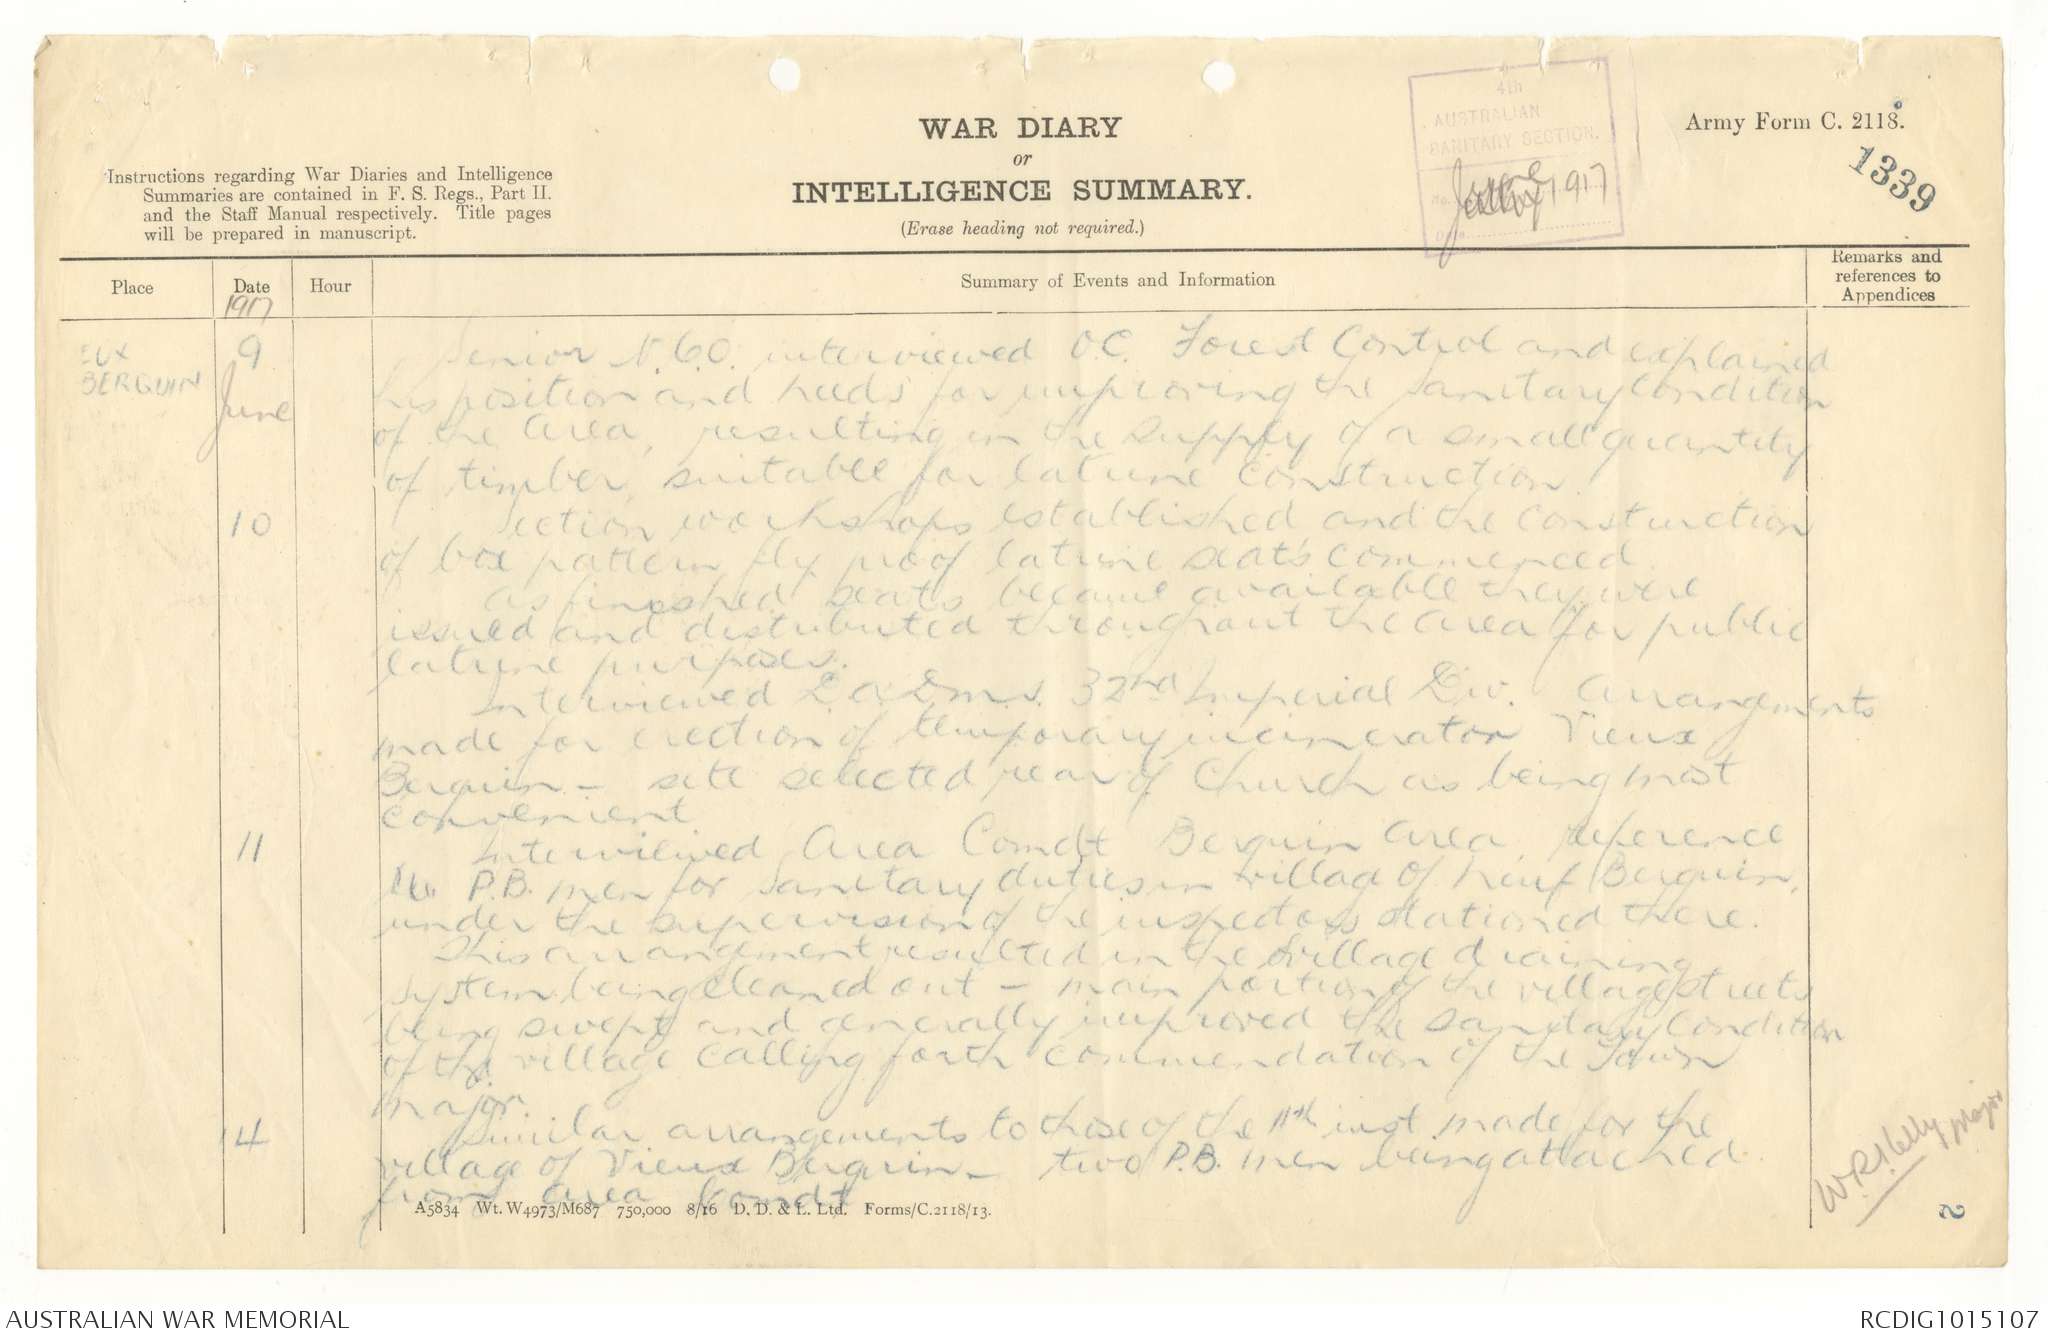 WAR DIARY
or
INTELLIGENCE SUMMARY.
(Erase heading not required.)
Instructions regarding War Diaries and Intelligence
Summaries are contained in F. S. Regs., Part II.
and the Staff Manual respectively. Title pages
will be prepared in manuscript.
4th
AUSTRALIAN
SANITARY SECTION.
No.
June 1917
Date
Army Form C. 2118.
1339
Place
Date
1917
Hour
Summary of Events and Information
Remarks and
references to
Appendices
BERQUIN
9
June
Senior N.C.O. interviewed O.C. Forest Control and explained
his position and needs for improving the sanitary condition
of the area, resulting in the supply of a small quantity
of timber, suitable for latrine construction.
10
Section workshops established and the construction
of box pattern fly proof latrine seats commenced.
As finished seats became available they were
issued and distributed throughout the area for public
latrine purposes.
Interviewed D.A.D.M.S. 32nd Imperial Div. Arrangements
made for erection of temporary incinerator Vieux
Berquin - site selected rear of Church as being most
convenient
11
Interviewed Area Comdt Berquin area, reference
P.B. men for sanitary duties in village of Neuf Berquin,
under the supervision of the inspectors stationed there.
This arrangement resulted in the village draining
system being cleaned out - main portion of the village streets
being swept and generally improved the sanitary condition
of the village calling forth commendation of the Town
Major.
14
Similar arrangements to those of the 11th inst. made for the
village of Vieux Berquin - two P.B. men being attached
from area Comdt
W.R. Kelly Major
A5834 Wt. W4973/M687 750,000 8/16 D. D. & L. Ltd. Forms/C.2118/13.
2
AUSTRALIAN WAR MEMORIAL
RCDIG1015107